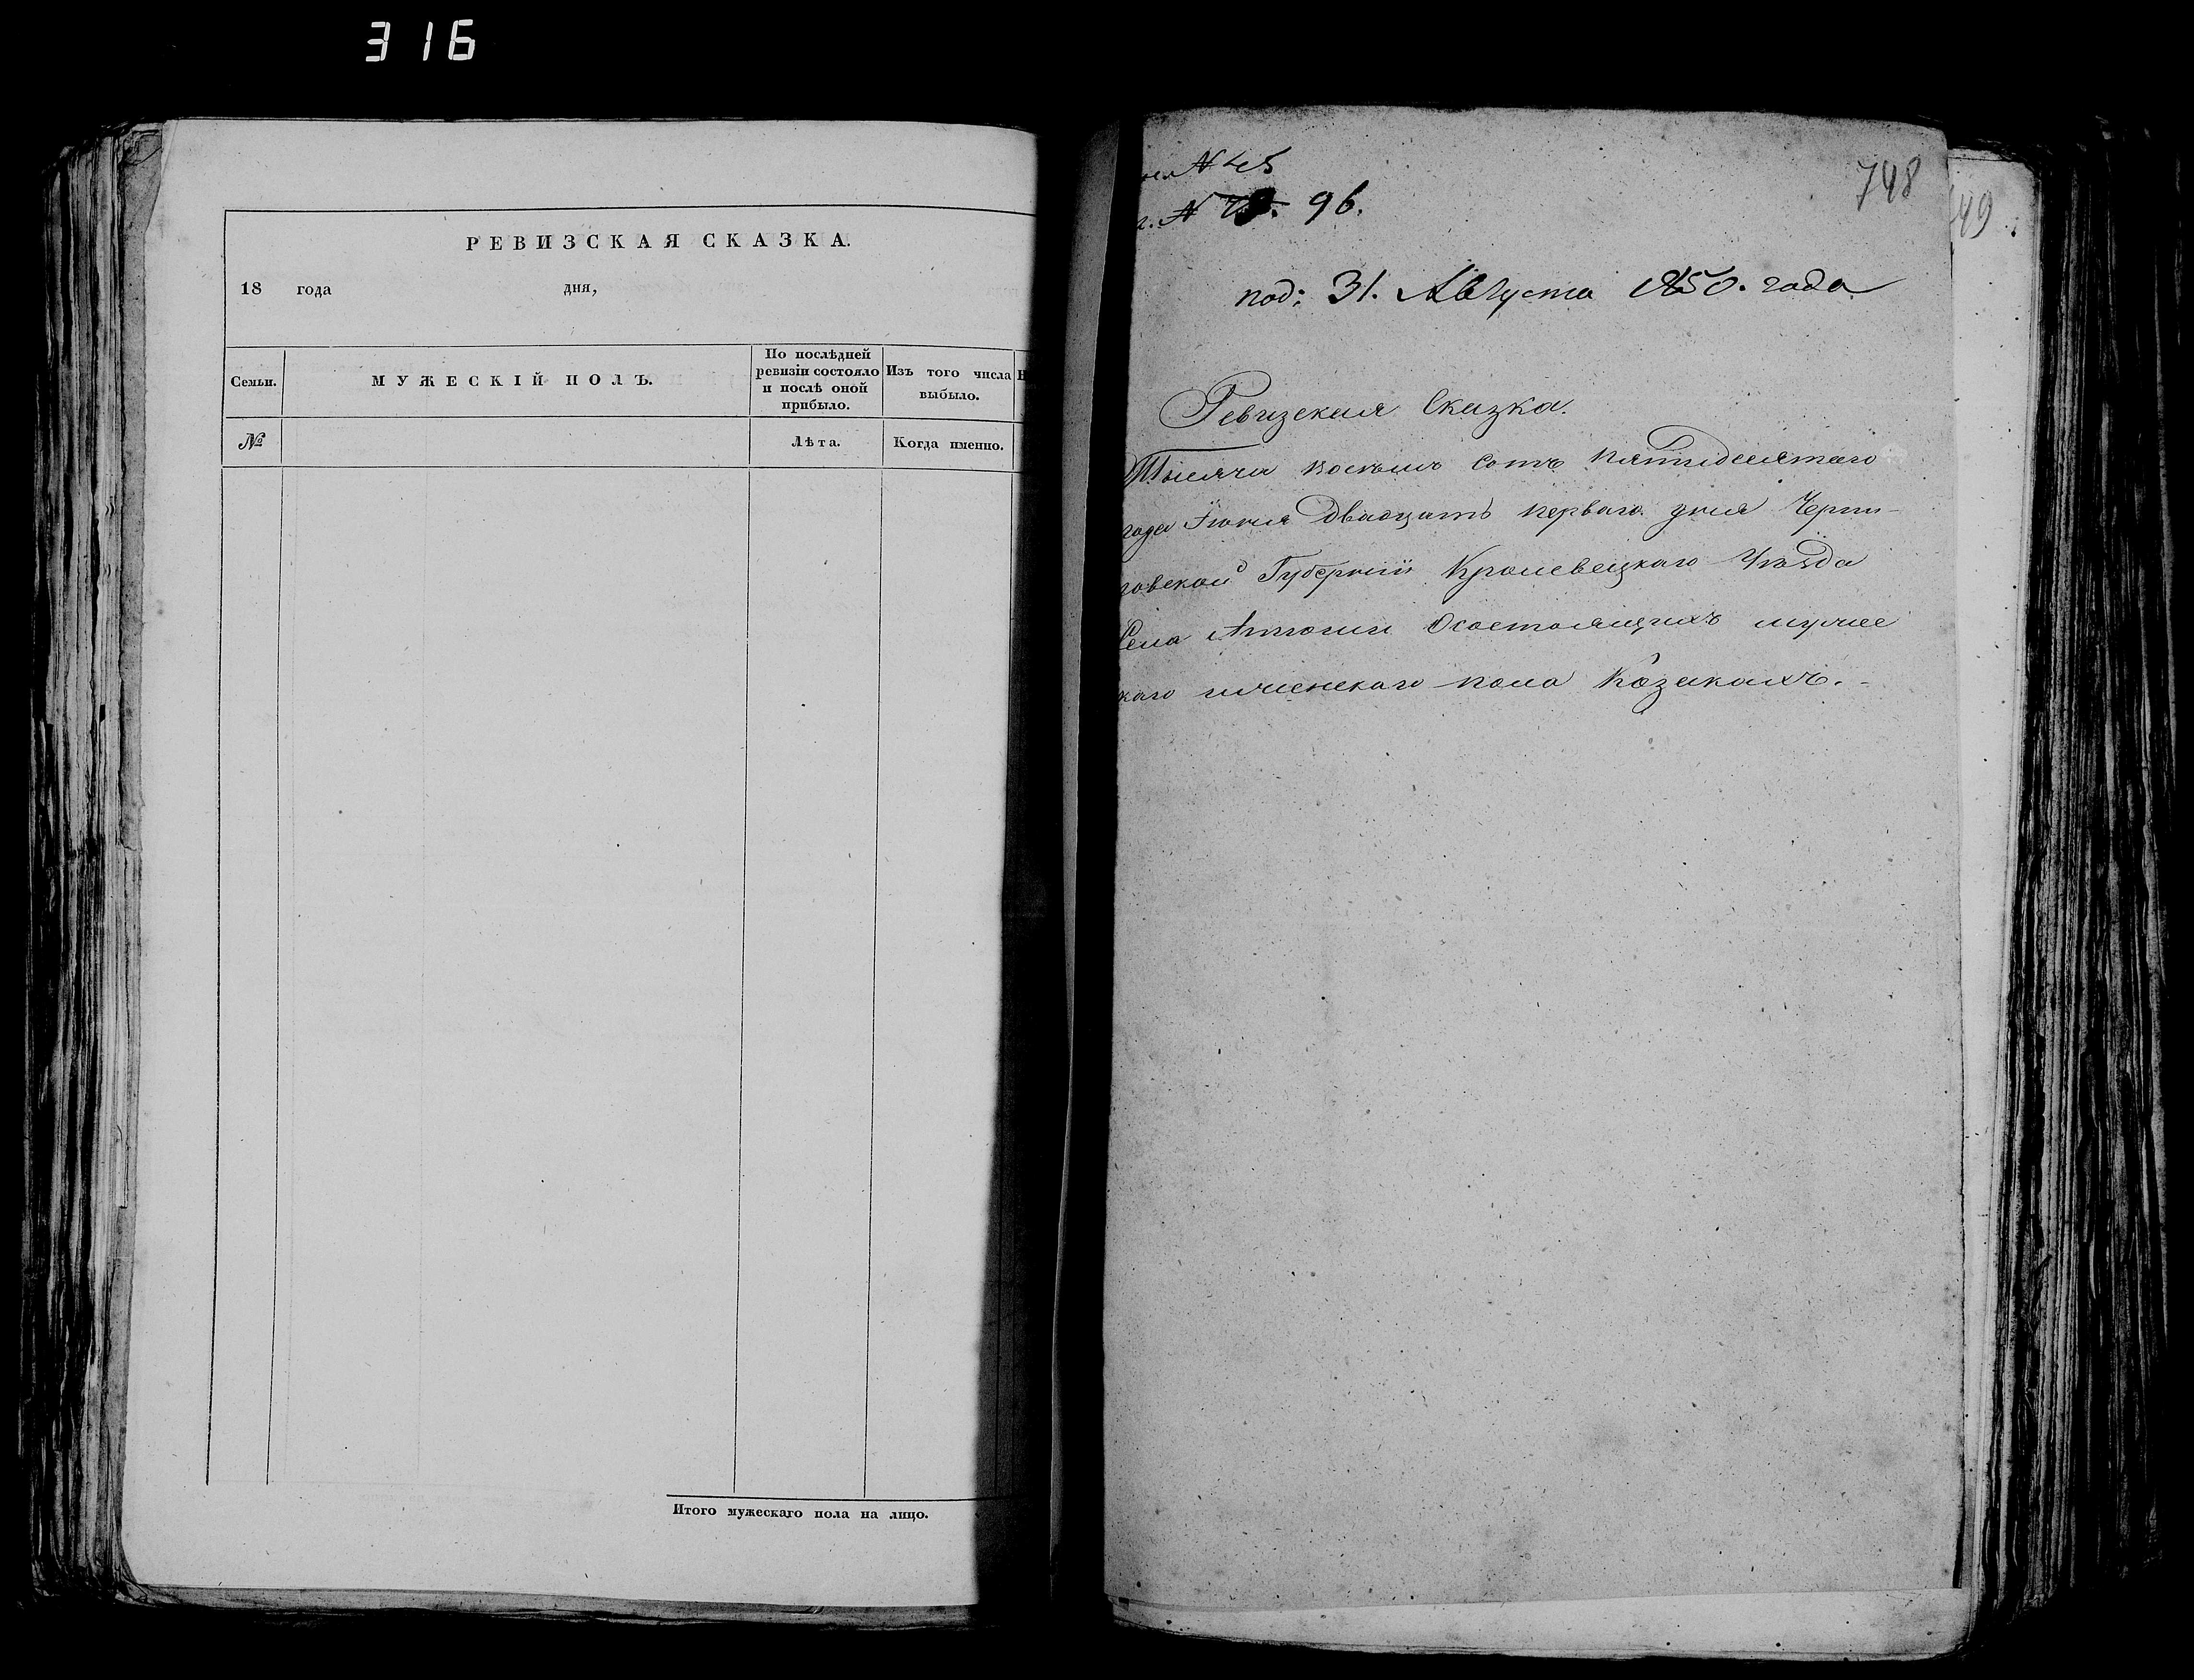 316
РЕВИЗСКАЯ СКАЗКА.
18 года дня,
Семьи.
МУЖЕСКІЙ ПОЛЪ.
По послѣдней
ревизіи состояло
и послѣ оной
прибыло.
Изъ того числа
выбыло.
№
Лѣта.
Когда именно.
Итого мужескаго пола на лицо.
№ 45
№ 96.
748
49
под: 31. Августа 1850. года
Ревизская Сказка.
Тысяча восемь сотъ пятидесятаго
года Іюня двадцать перваго дня Черни-
говской Губерніи Кролевецкаго Уѣзда
Села Состоящихъ мужес
каго иженскаго пола Козакахъ.-